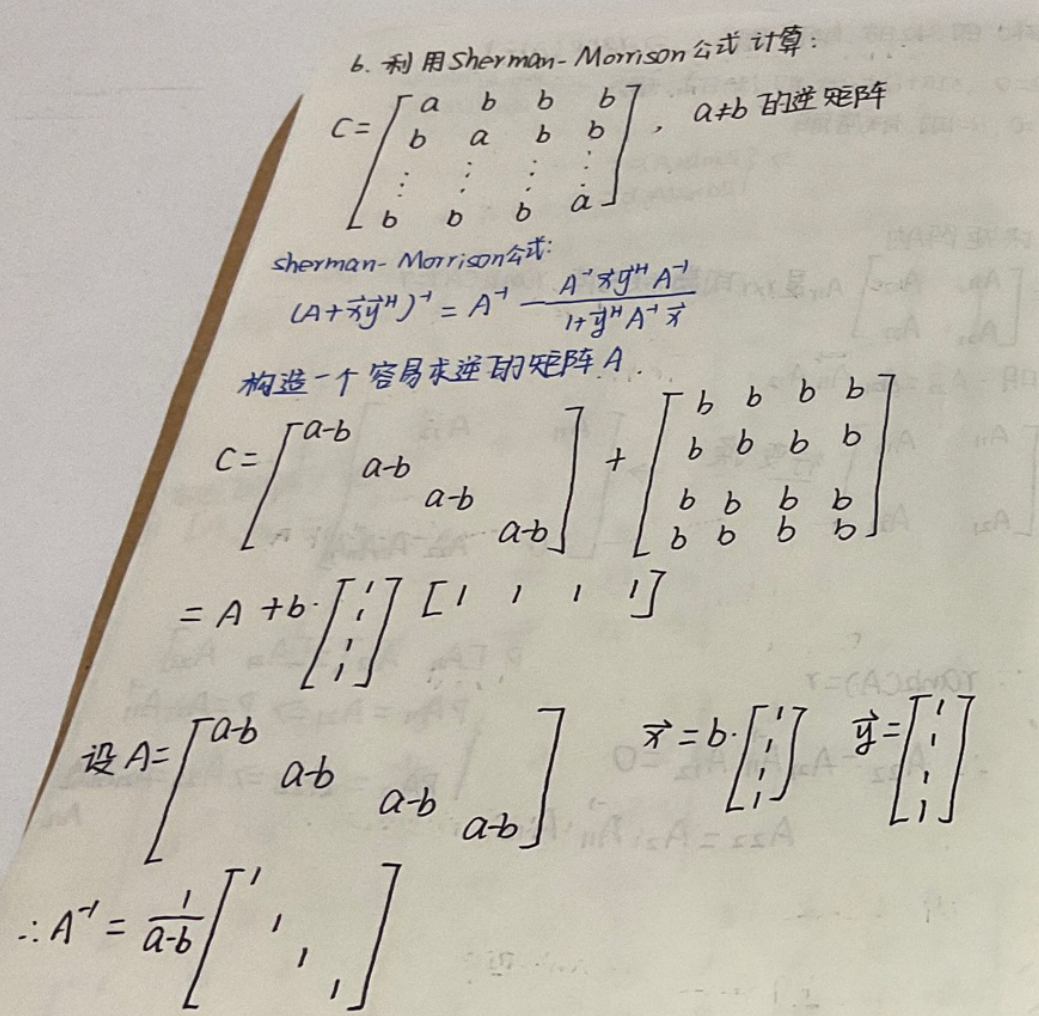 6. 利用Sherman-Morrison公式计算:
C = [a b b b; b a b b; ⋮ ⋮ ⋮ ⋮; b b b a], a≠b 的逆矩阵
sherman-Morrison公式:
(A+x⃗y⃗ᴴ)⁻¹ = A⁻¹ - (A⁻¹x⃗y⃗ᴴA⁻¹)/(1+y⃗ᴴA⁻¹x⃗)
构造一个容易求逆的矩阵A.
C = [a-b a-b a-b a-b] + [b b b b; b b b b; b b b b; b b b b]
= A + b·[1; 1; 1; 1] [1 1 1 1]
设A = [a-b a-b a-b a-b] x⃗ = b·[1; 1; 1; 1] y⃗ = [1; 1; 1; 1]
∴A⁻¹ = 1/(a-b) [1 1 1 1]